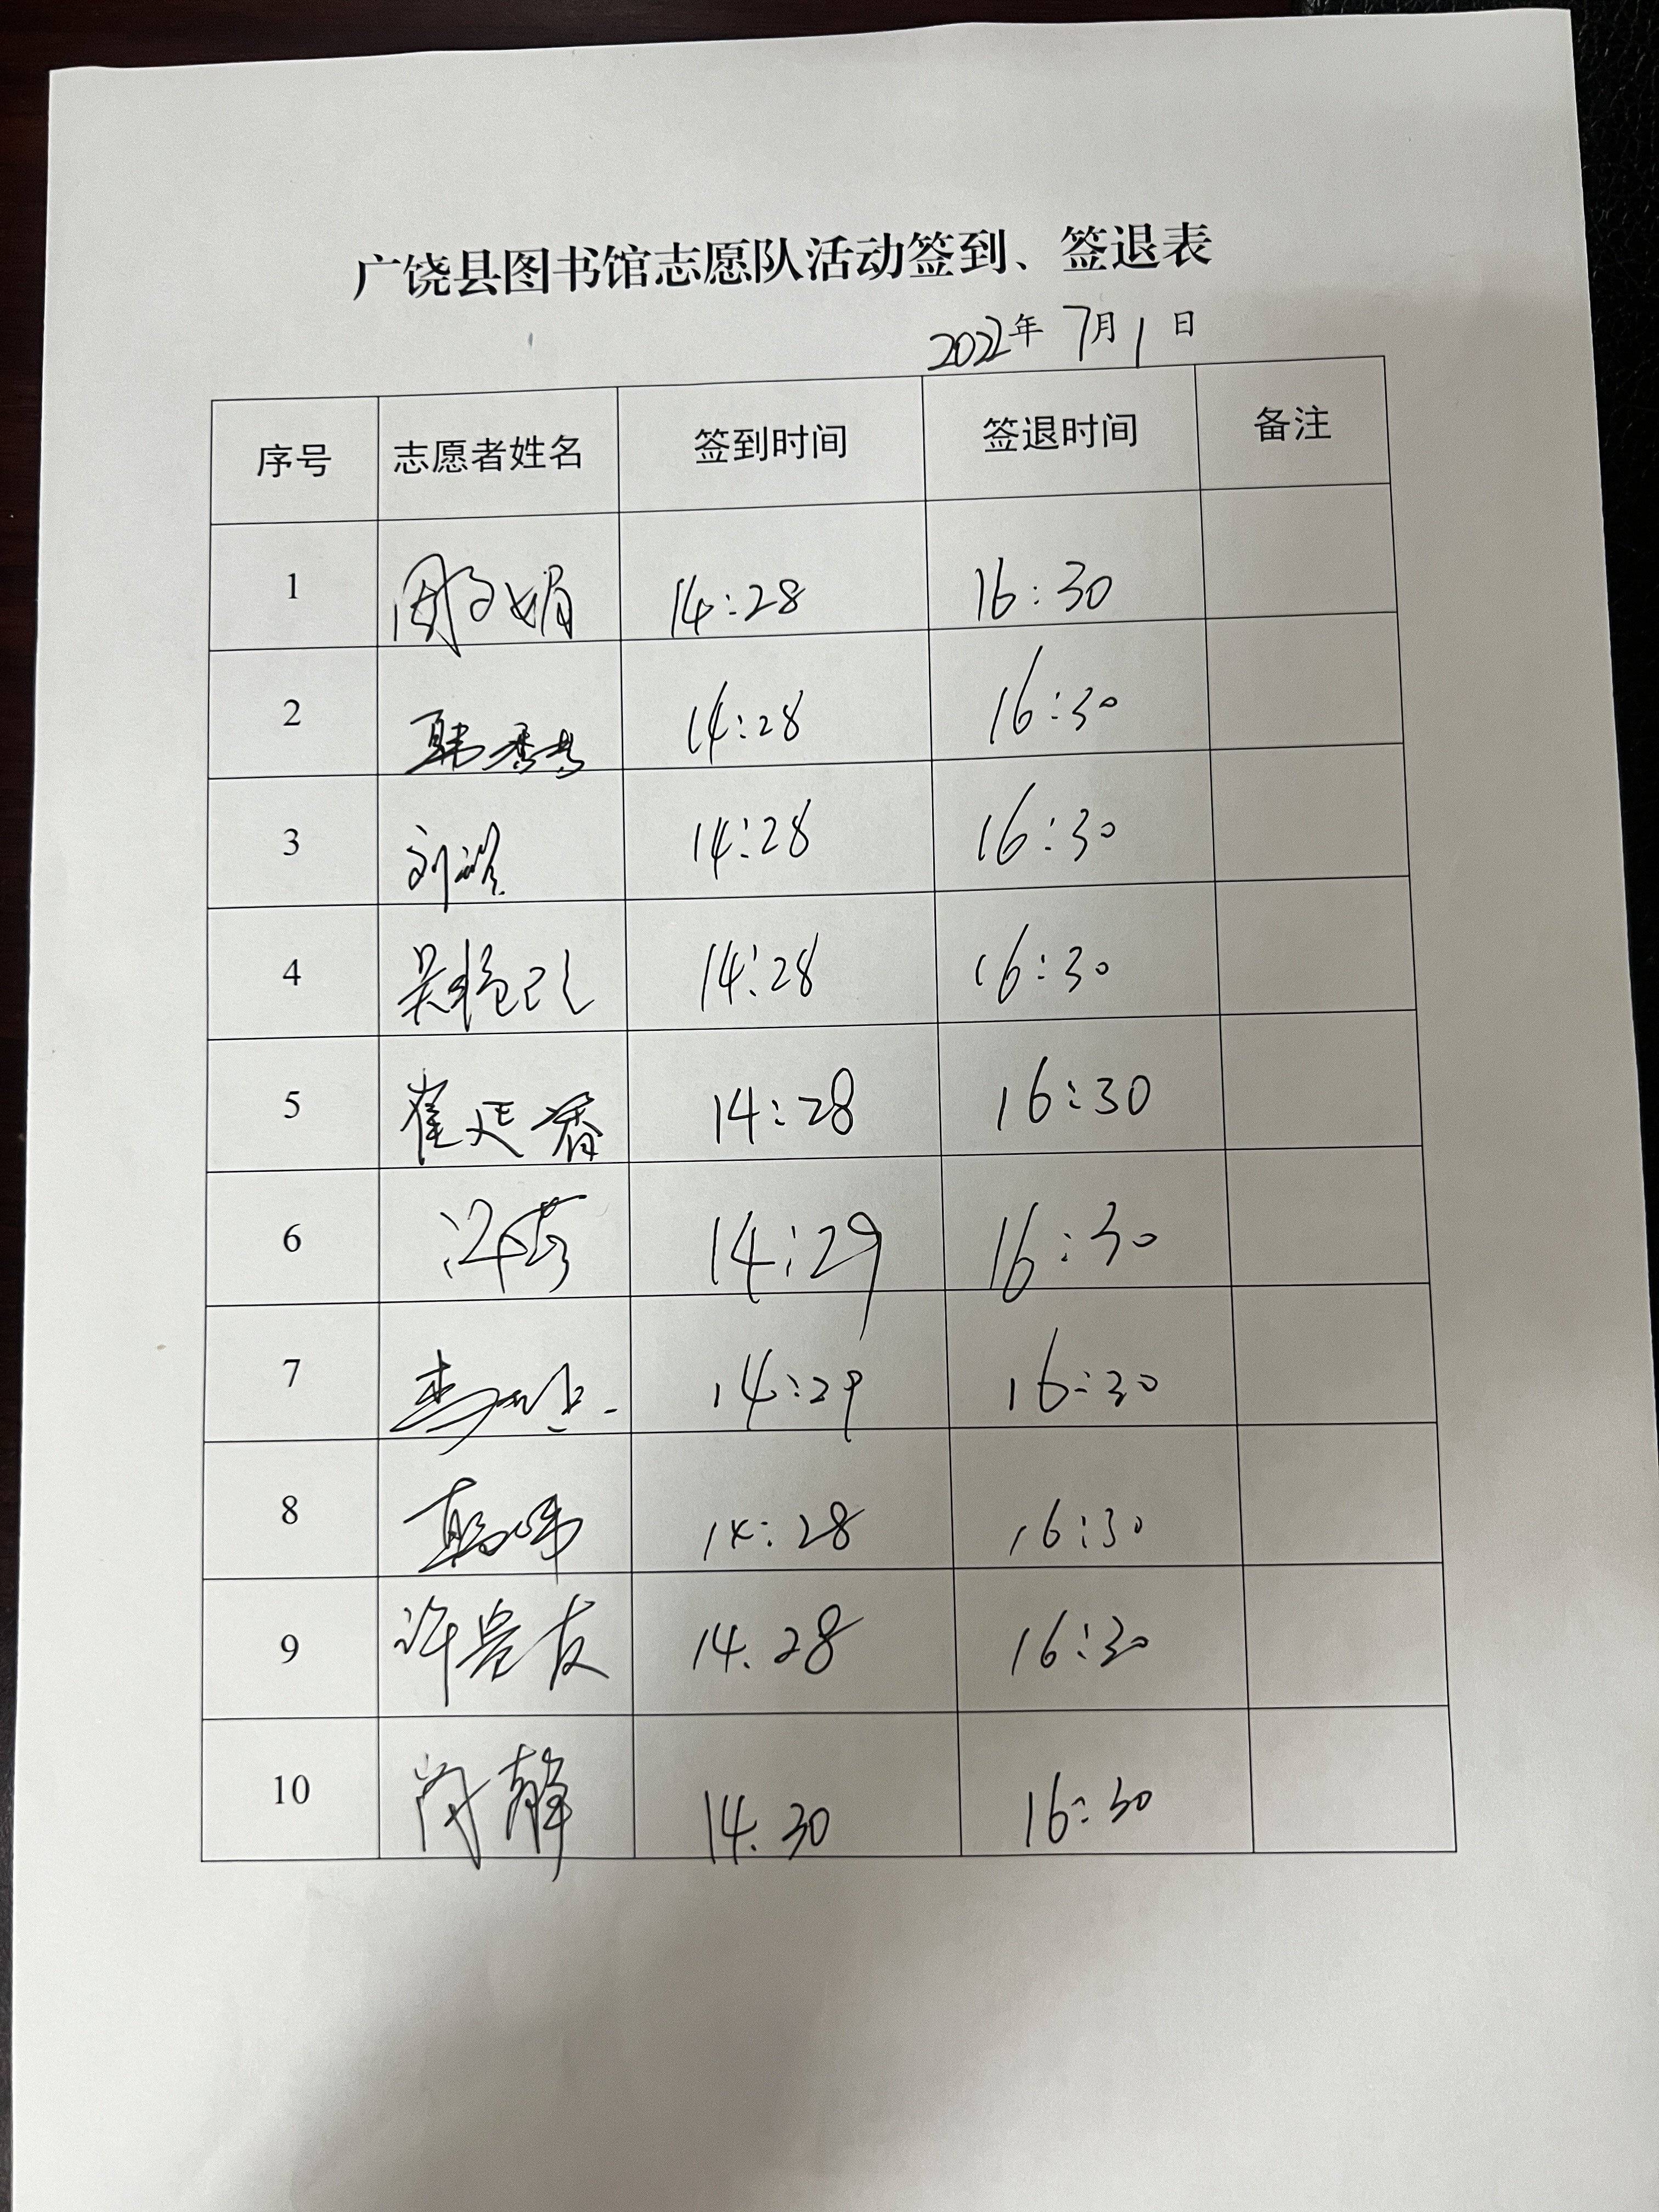 广饶县图书馆志愿队活动签到、签退表
2022年 7月1日
序号 志愿者姓名 签到时间 签退时间 备注
1 周子娟 14:28 16:30
2 14:28 16:30
3 刘 14:28 16:30
4 吴艳 14:28 16:30
5 崔延春 14:28 16:30
6 14:29 16:30
7 李 14:29 16:30
8 14:28 16:30
9 许景友 14.28 16:30
10 尚静 14.30 16:30